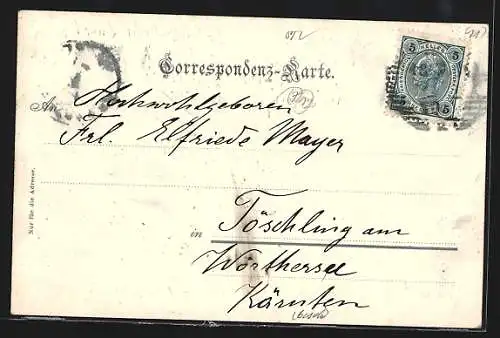 Correspondenz-Karte.
An Hochwohlgeboren
Frl. Elfriede Mayer
in Töschling am
Wörthersee
Kärnten
Nur für die Adresse.
5 HELLER 5
5